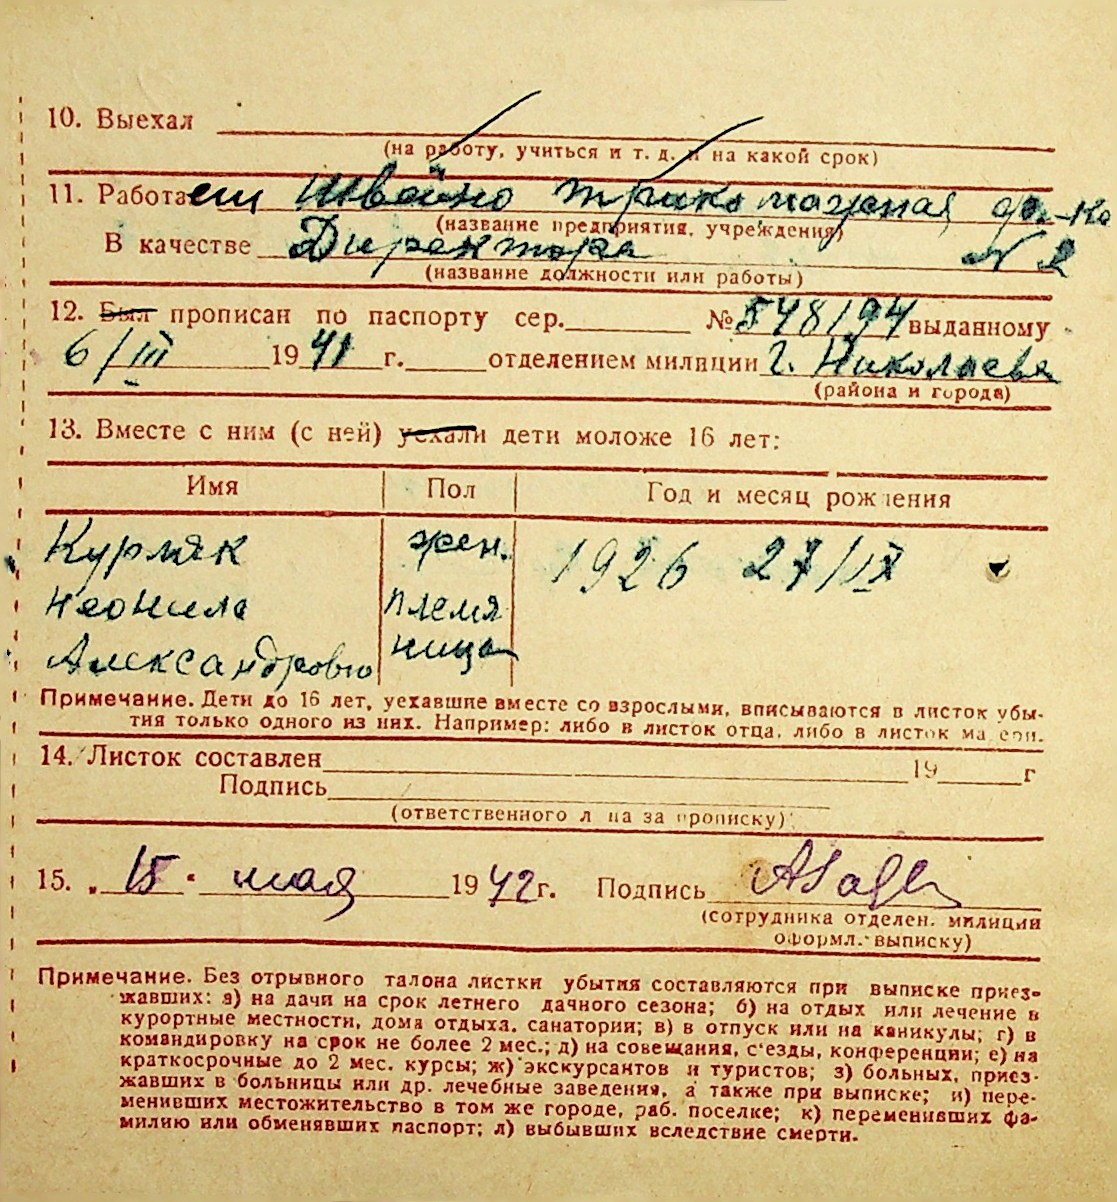 10. Выехал
(на работу, учиться и т. д. и на какой срок)
11. Работает Швейно трикотажная ф-ка
(название предприятия, учреждения)
В качестве Директора № 2
(название должности или работы)
12. Был прописан по паспорту сер. № 548194 выданному
6/III 1941 г. отделением милиции г. Николаева
(района и города)
13. Вместе с ним (с ней) уехали дети моложе 16 лет:
Имя Пол Год и месяц рождения
Курляк жен. 1926 27/IX
Неонила племя
Александровна ница
Примечание. Дети до 16 лет, уехавшие вместе со взрослыми, вписываются в листок убы-
тия только одного из них. Например: либо в листок отца, либо в листок матери.
14. Листок составлен 19 г
Подпись
(ответственного лица за прописку)
15. „ 15 " мая 1942 г. Подпись
(сотрудника отделен. милиции
оформл. выписку)
Примечание. Без отрывного талона листки убытия составляются при выписке приез-
жавших: а) на дачи на срок летнего дачного сезона; б) на отдых или лечение в
курортные местности, дома отдыха, санатории; в) в отпуск или на каникулы; г) в
командировку на срок не более 2 мес.; д) на совещания, с'езды, конференции; е) на
краткосрочные до 2 мес. курсы; ж) экскурсантов и туристов; з) больных, приез-
жавших в больницы или др. лечебные заведения, а также при выписке; и) пере-
менивших местожительство в том же городе, раб. поселке; к) переменивших фа-
милию или обменявших паспорт; л) выбывших вследствие смерти.